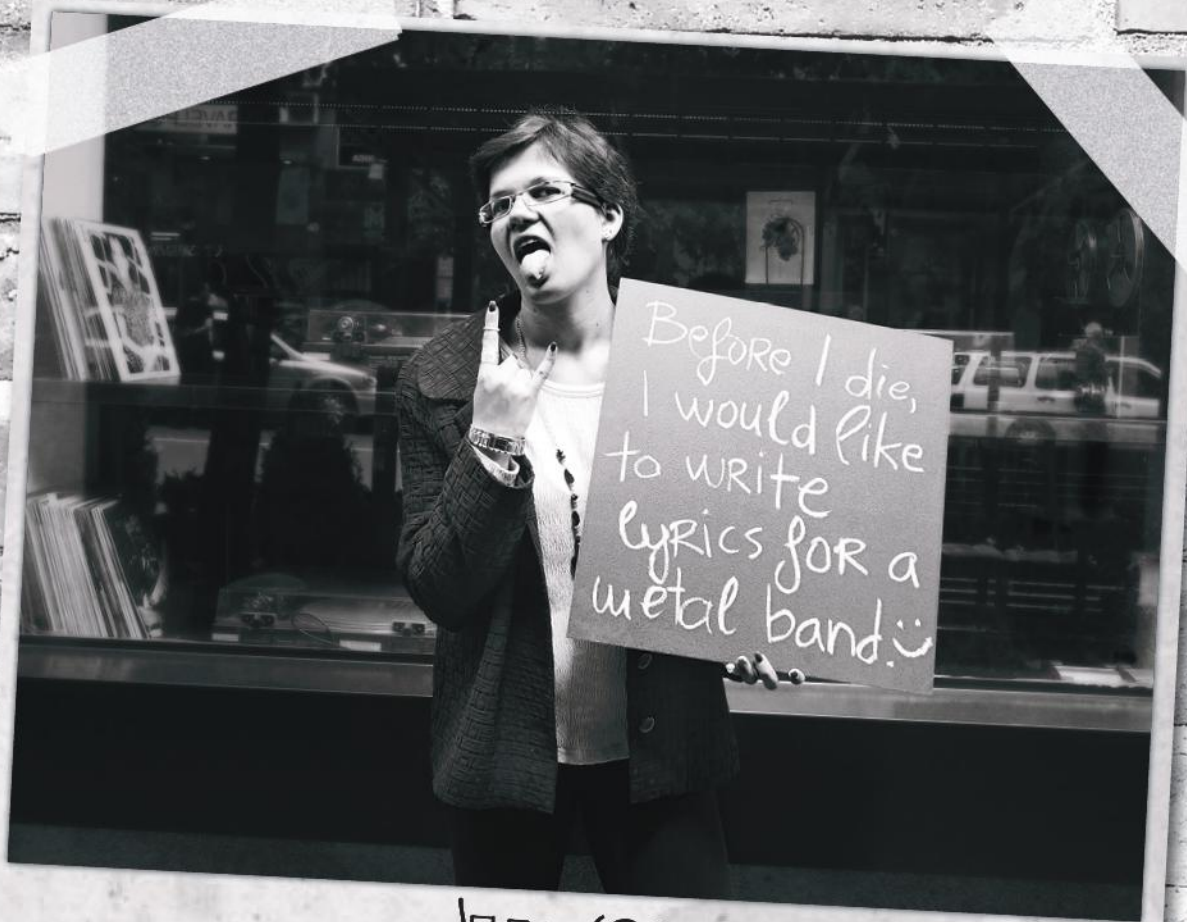 Before I die,
I would like
to write
lyrics for a
metal band. :)